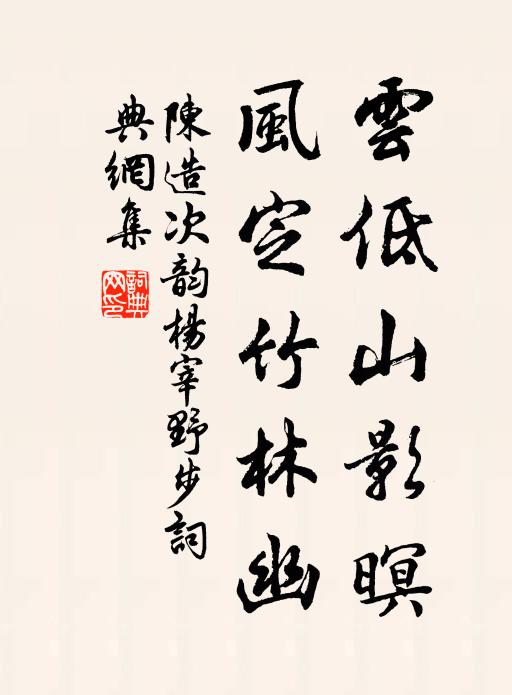 雲低山影暝
風定竹林幽
陳造次韵楊宰野步詞
典網集
詞典網印